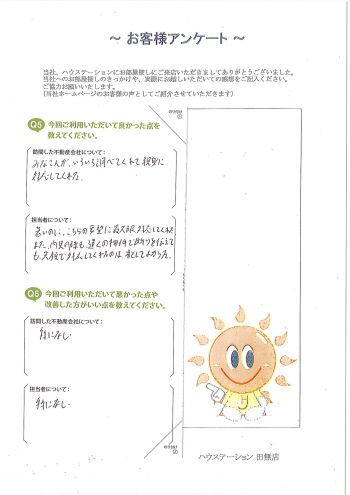 ～ お客様アンケート ～
当社、ハウステーションにお部屋探しにご来店いただきましてありがとうございました。
当社へのお部屋探しのきっかけや、実際にお越しいただいての感想をご記入ください。
ご協力お願いいたします。
(当社ホームページのお客様の声としてご紹介させていただきます)
Q5 今回ご利用いただいて良かった点を
教えてください。
訪問した不動産会社について：
みなさんが、いろいろ調べてくれて親身に
対応してくれた。
担当者について：
暑いのに、こちらの要望に最大限対応してくれた
また、内見の際も、遠くの物件で
も、笑顔で対応してくれたのは、良かった。
Q6 今回ご利用いただいて悪かった点や
改善した方がいい点を教えてください。
訪問した不動産会社について：
特になし
担当者について：
特になし
ハウステーション 田無店